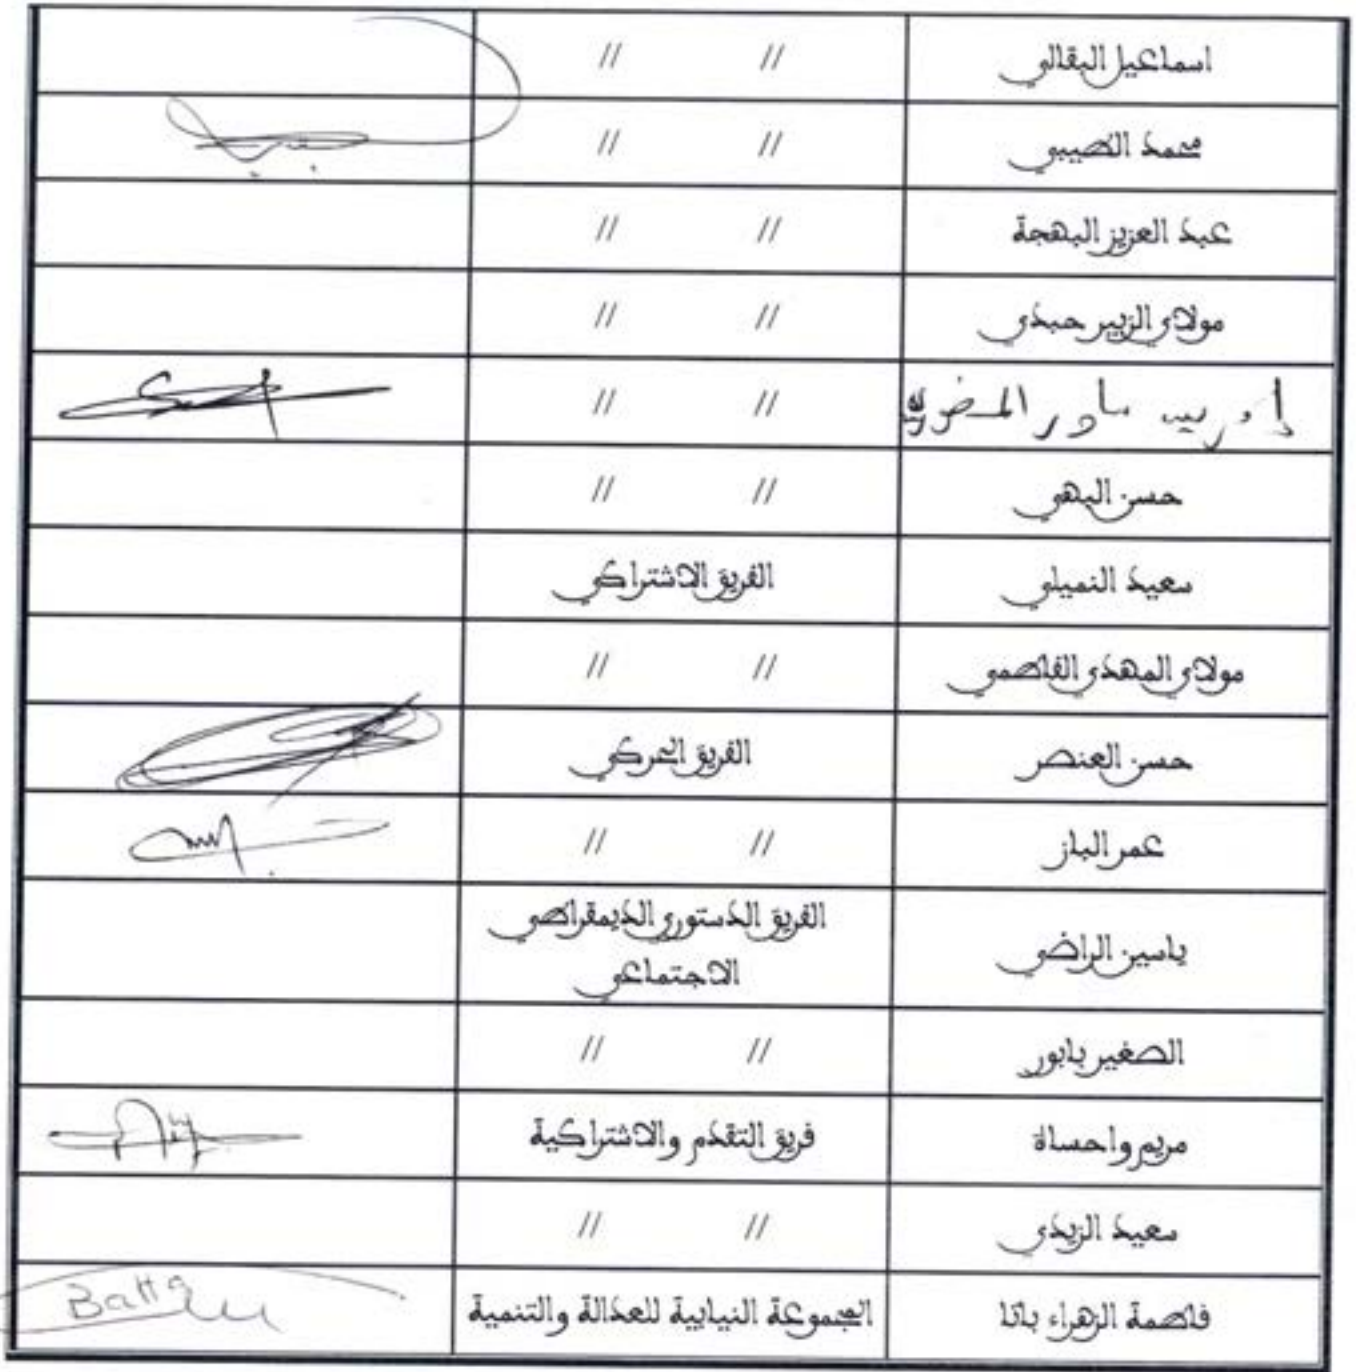 اسماعيل البقالي // //
محمد الطيبي // //
عبد العزيز البهجة // //
مولاي الزبير حبدي // //
// //
حسن البهي // //
سعيد النميلي الفريق الاشتراكي
مولاي المهدي الفاطمي // //
حسن العنصر الفريق الحركي
عمر الباز // //
ياسين الراضي الفريق الدستوري الديمقراطي
الاجتماعي
الصغير بابور // //
مريم واحساة فريق التقدم والاشتراكية
سعيد الزيدي // //
فاطمة الزهراء باتا المجموعة النيابية للعدالة والتنمية Batta